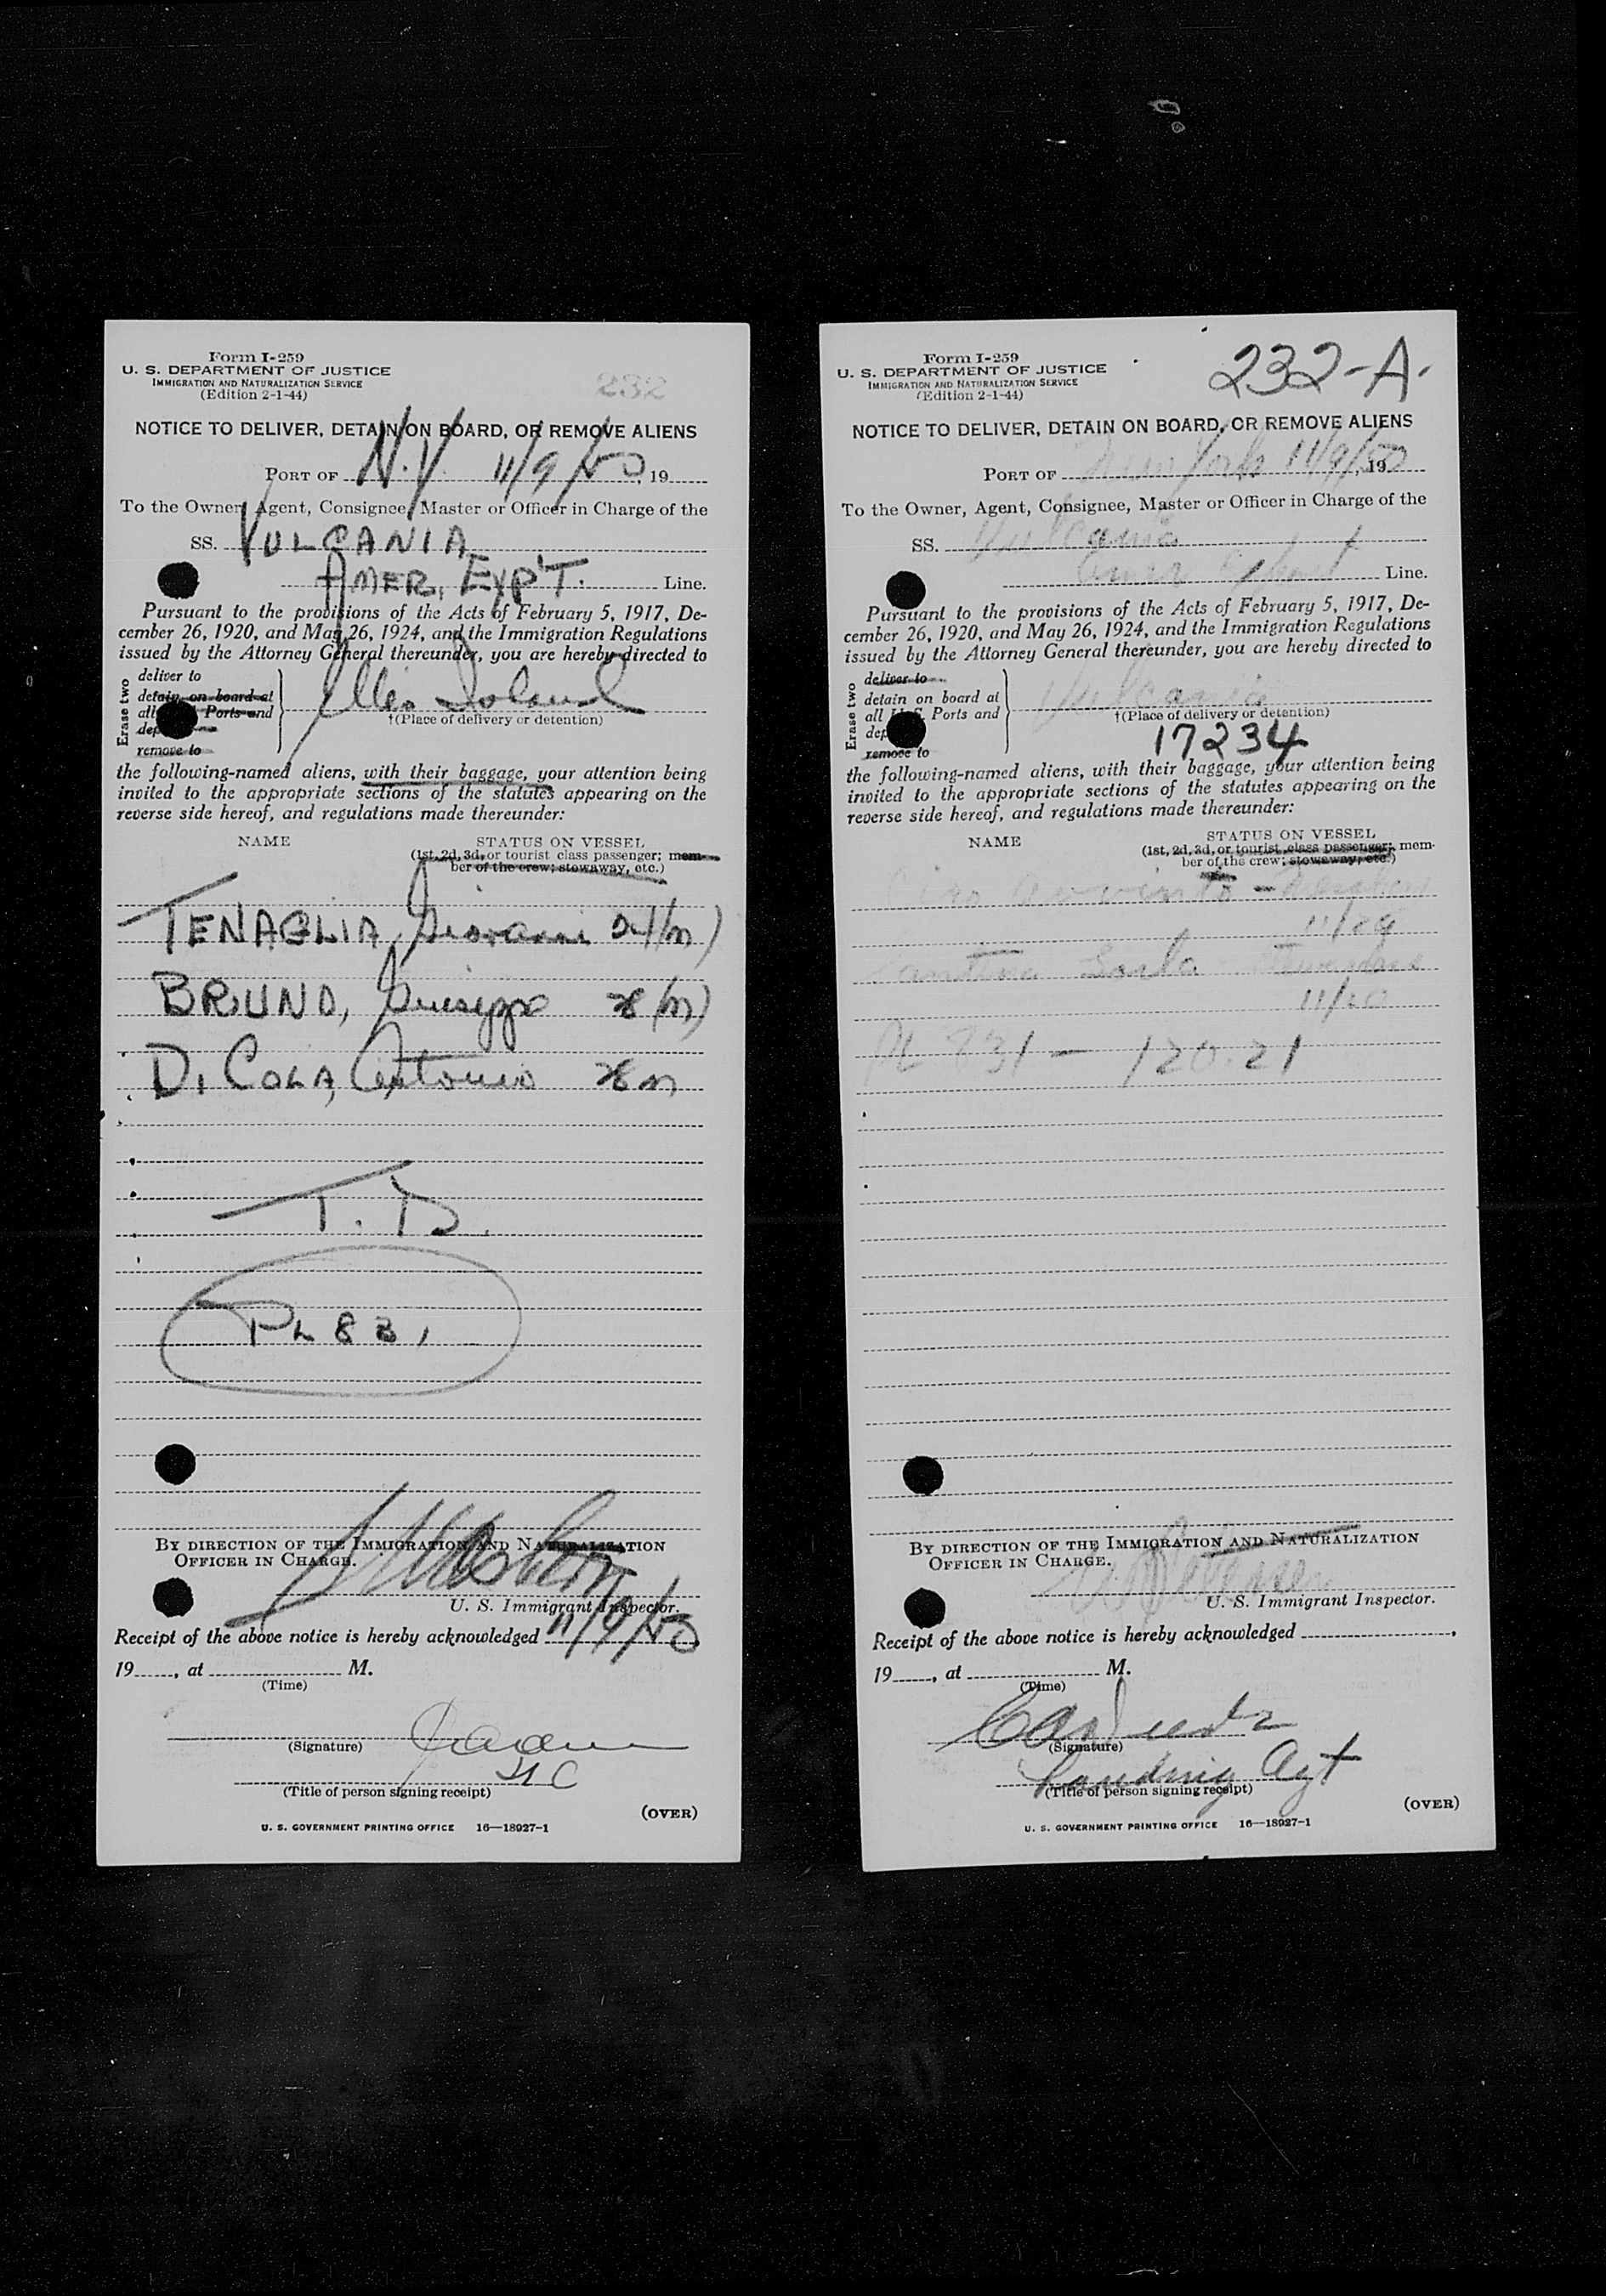 Form I-259
U. S. DEPARTMENT OF JUSTICE
IMMIGRATION AND NATURALIZATION SERVICE
(Edition 2-1-44)
232
NOTICE TO DELIVER, DETAIN ON BOARD, OR REMOVE ALIENS
PORT OF N.Y. 11/9/50, 19
To the Owner, Agent, Consignee, Master or Officer in Charge of the
SS. VULCANIA
AMER. EXP'T. Line.
Pursuant to the provisions of the Acts of February 5, 1917, De-
cember 26, 1920, and May 26, 1924, and the Immigration Regulations
issued by the Attorney General thereunder, you are hereby directed to
Erase two
deliver to
detain on board at
all Ports and
dep
remove to
Ellis Island
†(Place of delivery or detention)
the following-named aliens, with their baggage, your attention being
invited to the appropriate sections of the statutes appearing on the
reverse side hereof, and regulations made thereunder:
NAME STATUS ON VESSEL
(1st, 2d, 3d, or tourist class passenger; mem-
ber of the crew; stowaway, etc.)
TENAGLIA, Giovanni (m)
BRUNO, Giuseppe (m)
Di COLA, Antonio m
T. D.
PL 831
BY DIRECTION OF THE IMMIGRATION AND NATURALIZATION
OFFICER IN CHARGE.
U. S. Immigrant Inspector.
Receipt of the above notice is hereby acknowledged 11/9/50
19, at M.
(Time)
(Signature)
(Title of person signing receipt)
(OVER)
U. S. GOVERNMENT PRINTING OFFICE 16—18927-1
Form I-259
U. S. DEPARTMENT OF JUSTICE
IMMIGRATION AND NATURALIZATION SERVICE
(Edition 2-1-44)
232-A.
NOTICE TO DELIVER, DETAIN ON BOARD, OR REMOVE ALIENS
PORT OF New York 11/9/50, 19
To the Owner, Agent, Consignee, Master or Officer in Charge of the
SS. Vulcania
Amer Export Line.
Pursuant to the provisions of the Acts of February 5, 1917, De-
cember 26, 1920, and May 26, 1924, and the Immigration Regulations
issued by the Attorney General thereunder, you are hereby directed to
Erase two
deliver to
detain on board at
all U.S. Ports and
dep
remove to
Vulcania
†(Place of delivery or detention)
17234
the following-named aliens, with their baggage, your attention being
invited to the appropriate sections of the statutes appearing on the
reverse side hereof, and regulations made thereunder:
NAME STATUS ON VESSEL
(1st, 2d, 3d, or tourist class passenger; mem-
ber of the crew; stowaway, etc.)
11/29
11/20
PL 831 — 120.21
BY DIRECTION OF THE IMMIGRATION AND NATURALIZATION
OFFICER IN CHARGE.
U. S. Immigrant Inspector.
Receipt of the above notice is hereby acknowledged ,
19, at M.
(Time)
(Signature)
Landing Agt
(Title of person signing receipt)
(OVER)
U. S. GOVERNMENT PRINTING OFFICE 16—18927-1